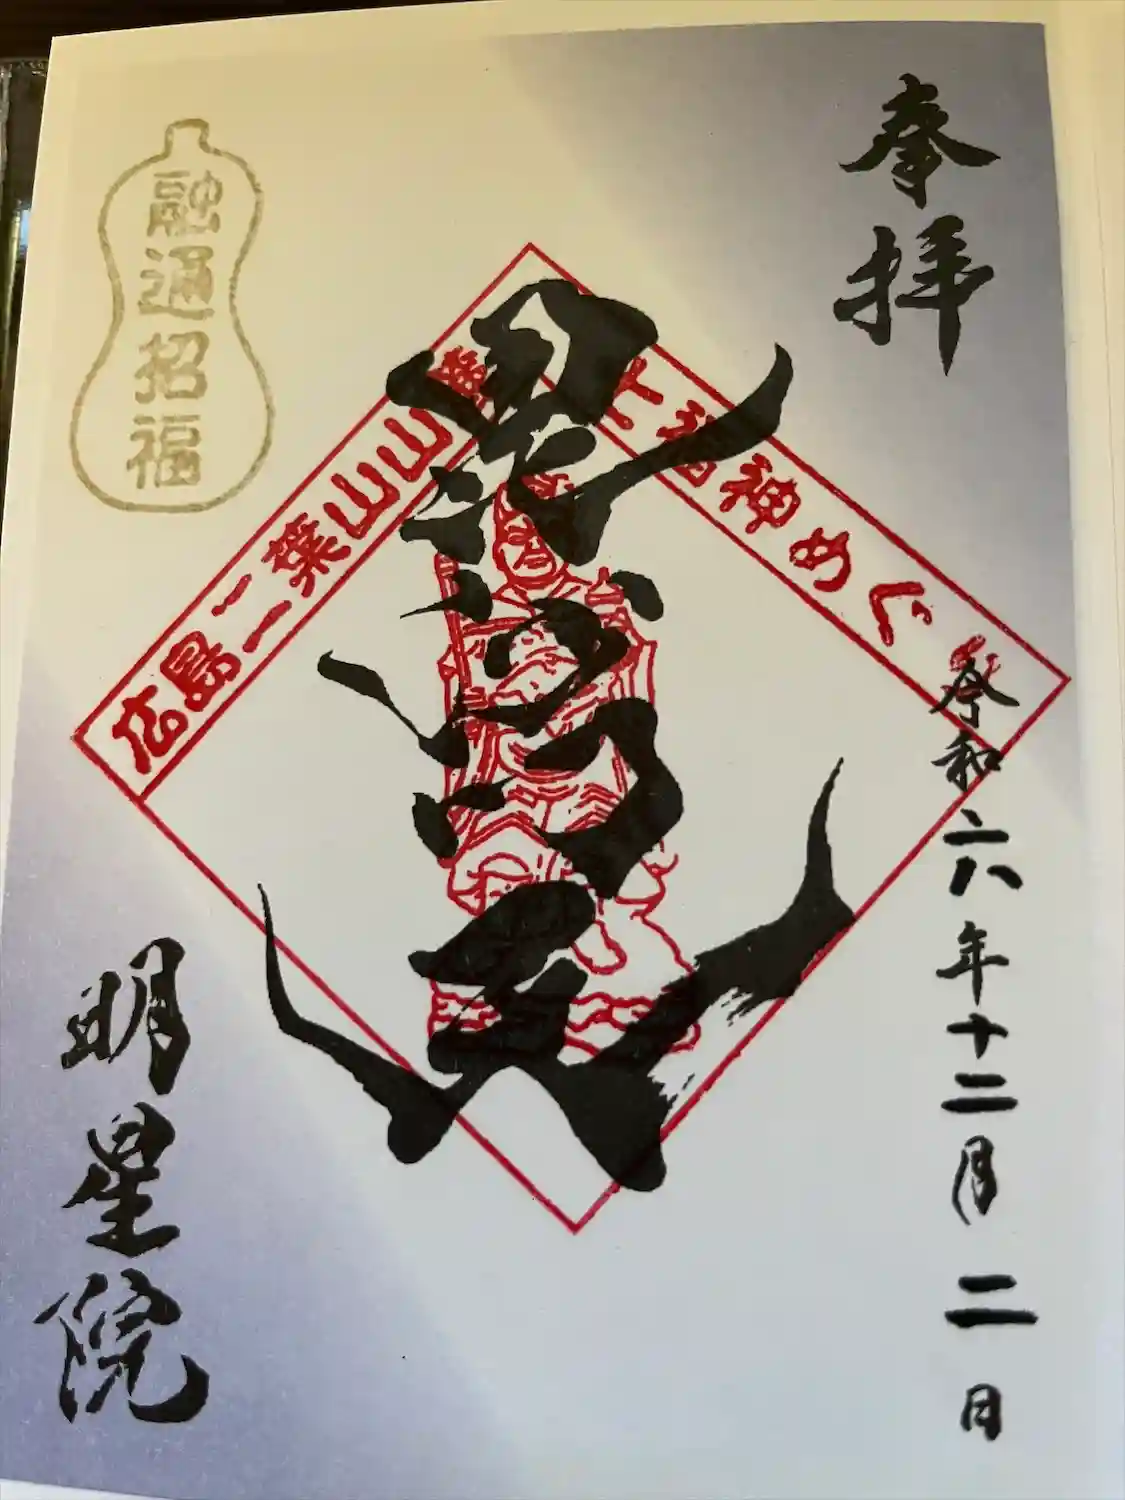 奉拝
令和六年十二月二日
毘沙門天
広島二葉山山麓
七福神めぐり
融通招福
明星院